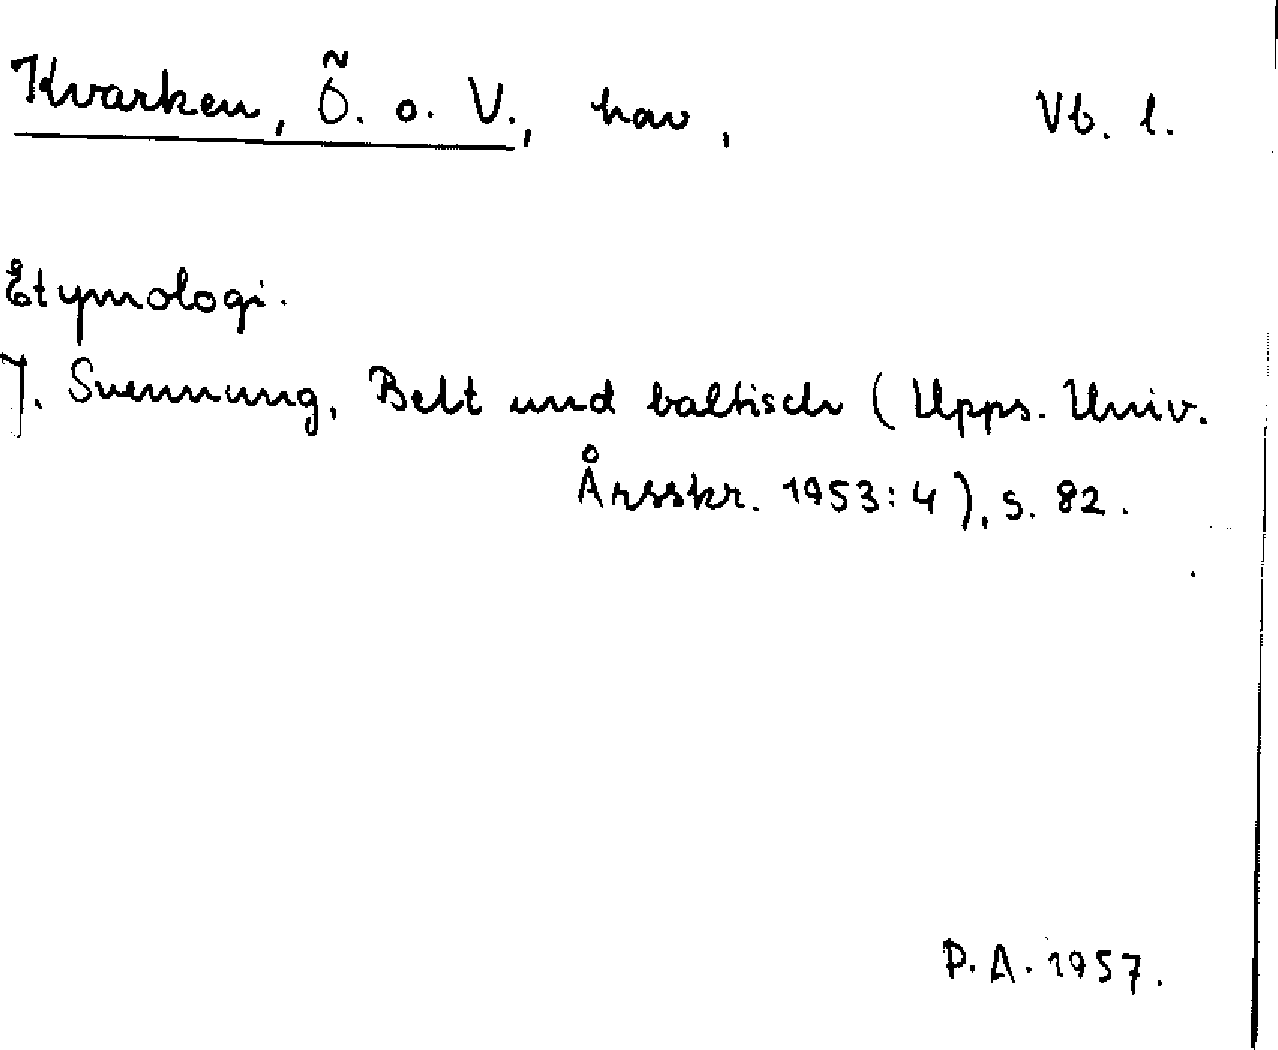 Kvarken, Ö. o. V., hav, Vb. l.
Etymologi.
J. Svennung, Belt und baltisch (Upps. Univ.
Årsskr. 1953:4), s. 82.
P. A. 1957.